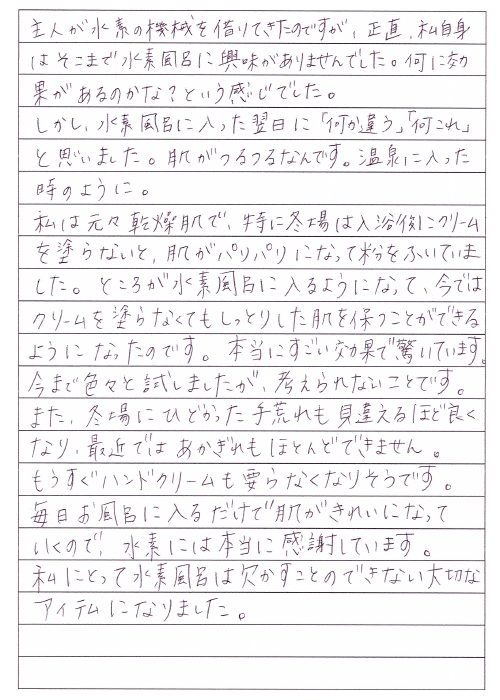 主人が水素の機械を借りてきたのですが、正直、私自身
はそこまで水素風呂に興味がありませんでした。何に効
果があるのかな？という感じでした。
しかし、水素風呂に入った翌日に「何か違う」「何これ」
と思いました。肌がつるつるなんです。温泉に入った
時のように。
私は元々乾燥肌で、特に冬場は入浴後にクリーム
を塗らないと、肌がパリパリになって粉をふいていま
した。ところが水素風呂に入るようになって、今では
クリームを塗らなくてもしっとりした肌を保つことができる
ようになったのです。本当にすごい効果で驚いています。
今まで色々と試しましたが、考えられないことです。
また、冬場にひどかった手荒れも見違えるほど良く
なり、最近ではあかぎれもほとんどできません。
もうすぐハンドクリームも要らなくなりそうです。
毎日お風呂に入るだけで肌がきれいになって
いくので、水素には本当に感謝しています。
私にとって水素風呂は欠かすことのできない大切な
アイテムになりました。